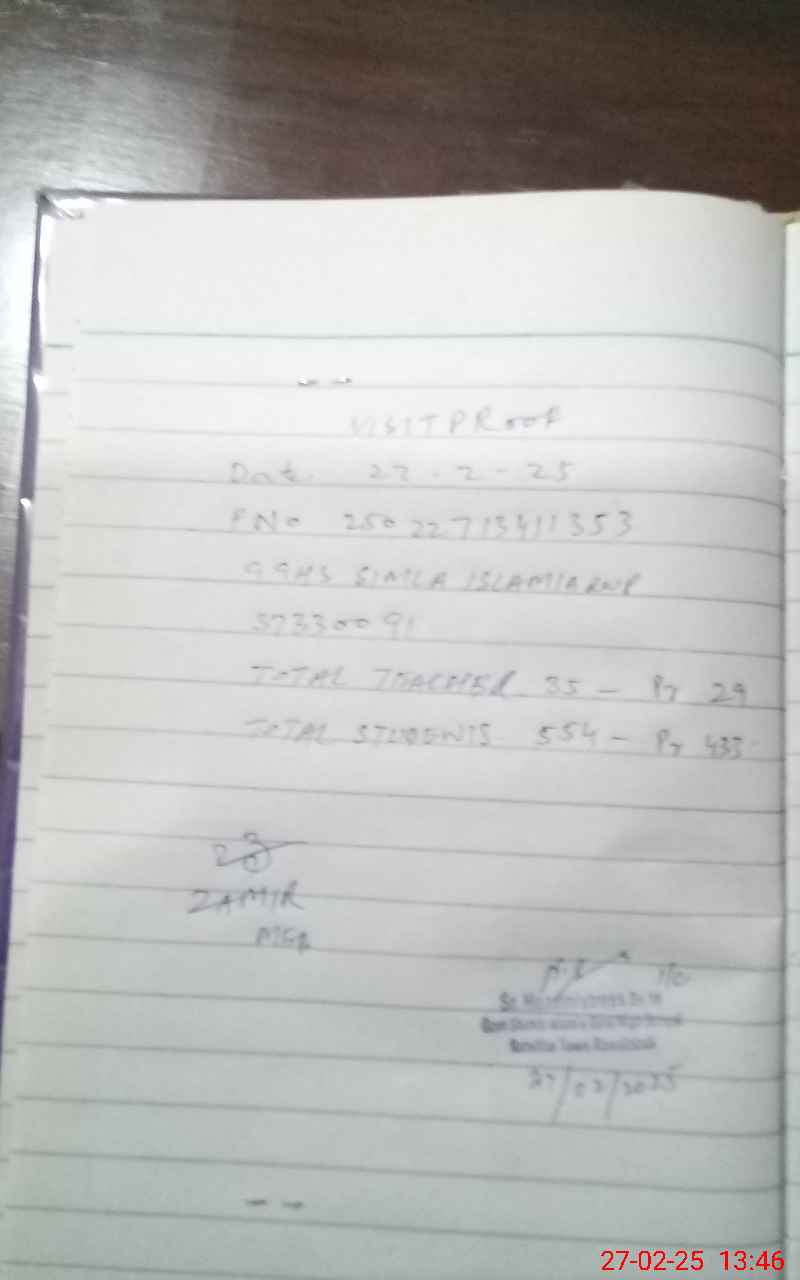 VISIT PROOF
Date 27-2-25
PNo 25022713411353
GGHS SIMLA ISLAMIA RWP
37330091
TOTAL TEACHER 35 - Pr 29
TOTAL STUDENTS 554 - Pr 433
ZAMIR
MEA
Sr. Headmistress
Girls High School
Town Rawalpindi
27/02/2025
27-02-25 13:46